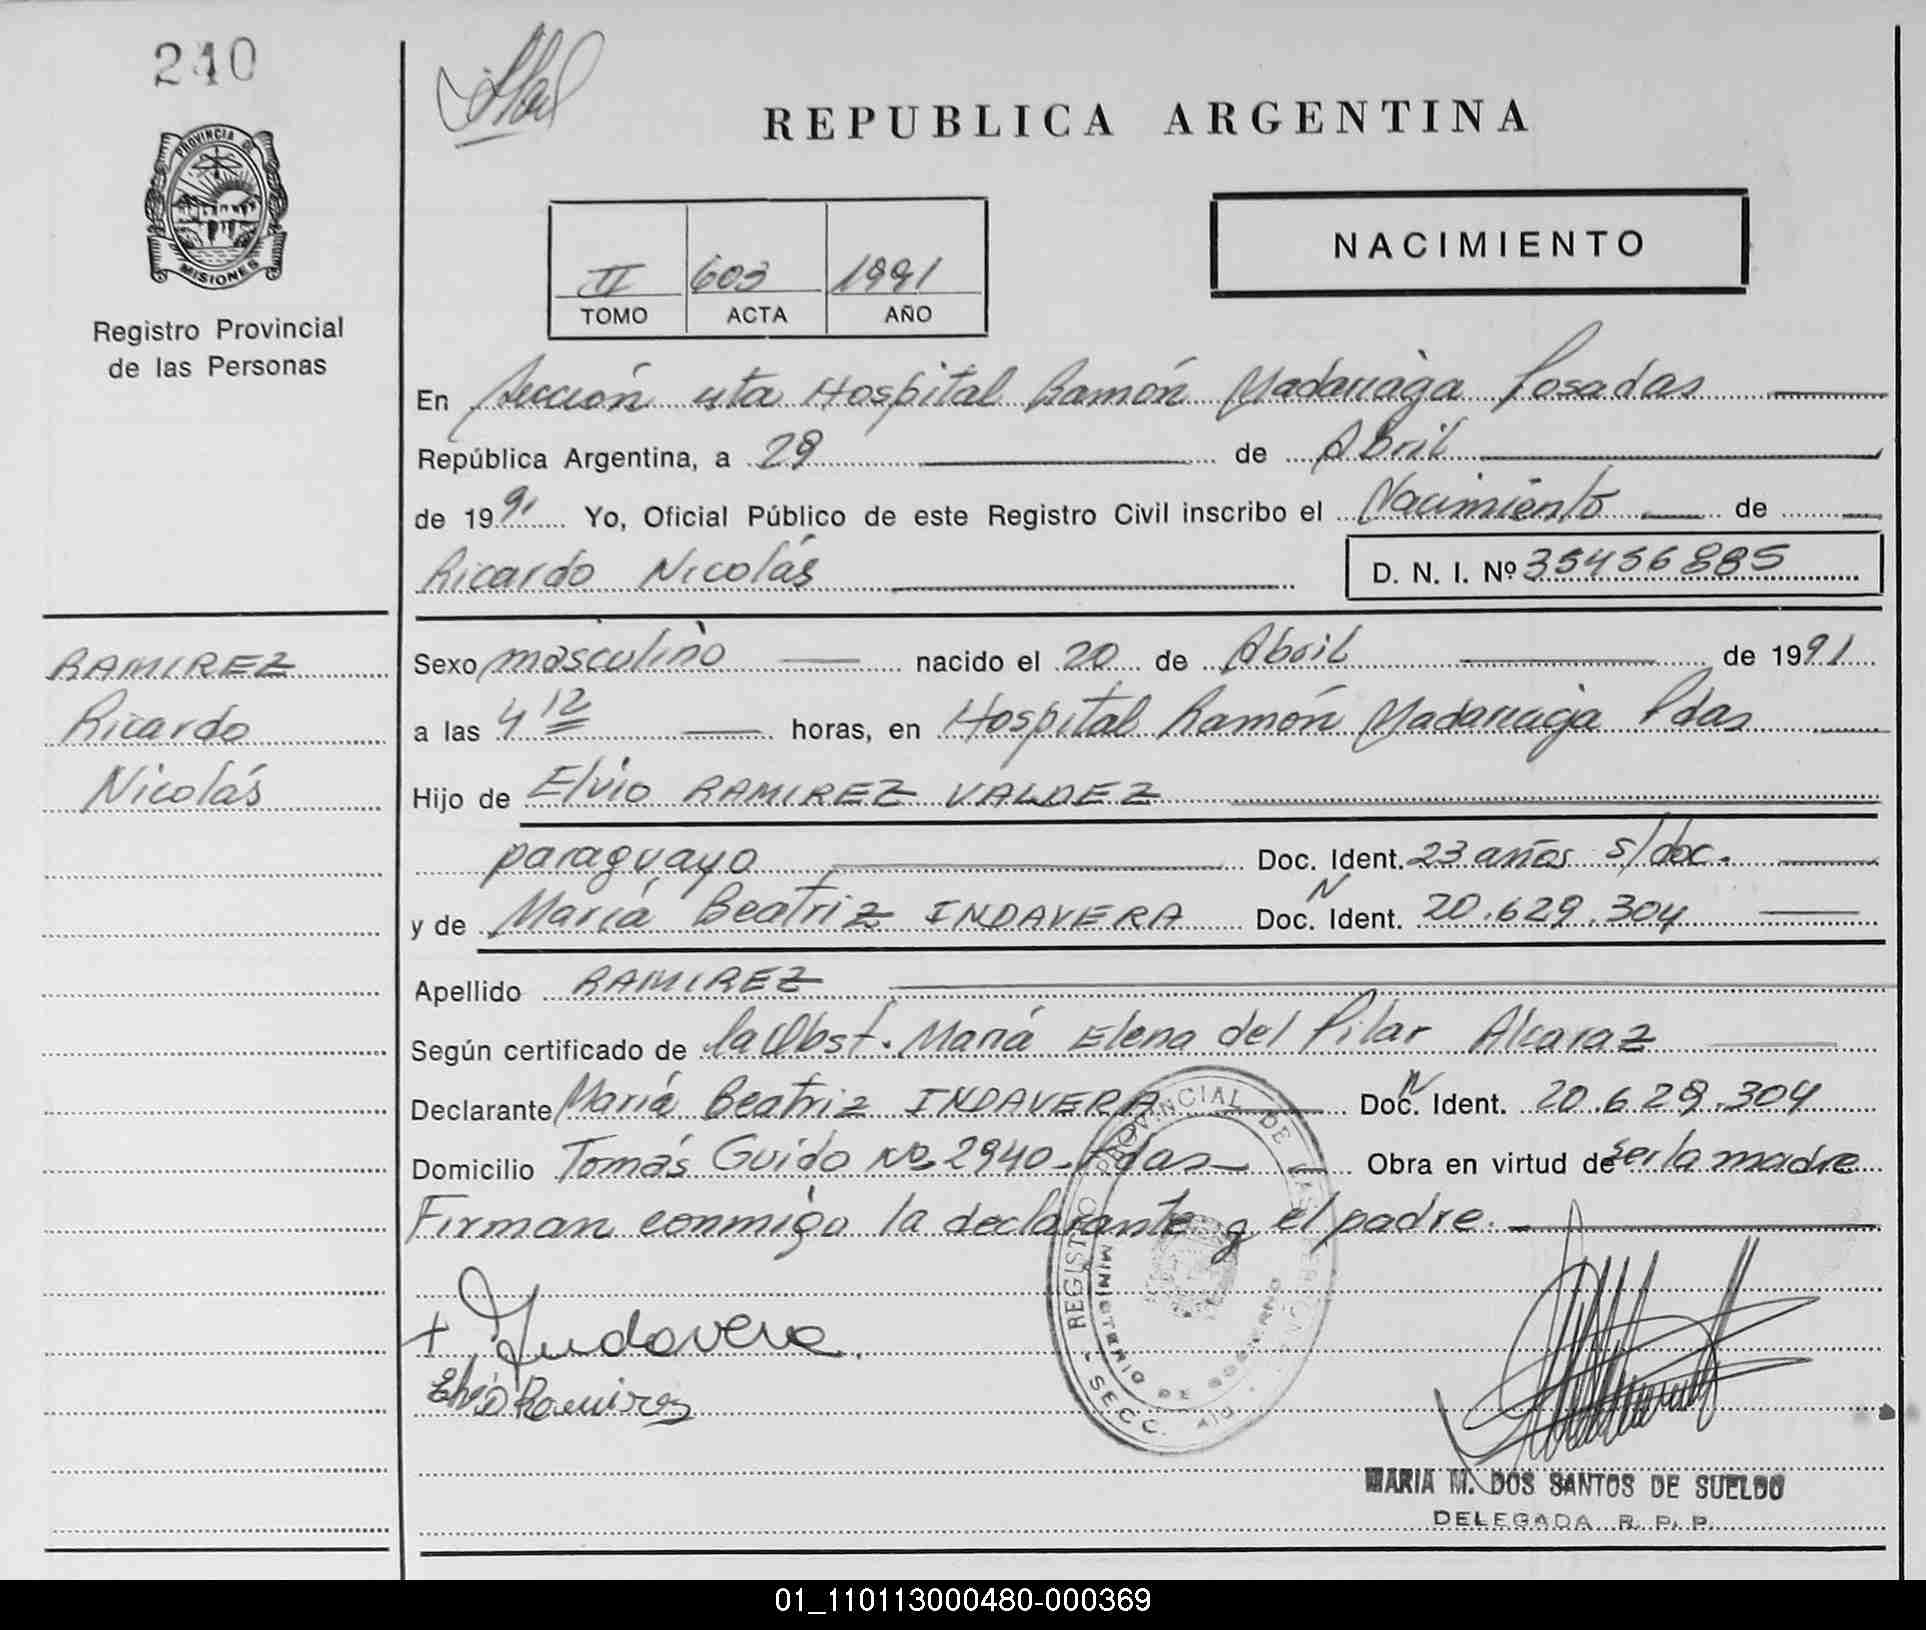 240
PROVINCIA DE
MISIONES
Registro Provincial
de las Personas
RAMIREZ
Ricardo
Nicolás
REPUBLICA ARGENTINA
NACIMIENTO
II 603 1991
TOMO ACTA AÑO
En Sección 4ta Hospital Ramón Madariaga Posadas
República Argentina, a 29 de Abril
de 1991 Yo, Oficial Público de este Registro Civil inscribo el Nacimiento de
Ricardo Nicolás D. N. I. Nº 35456885
Sexo masculino nacido el 20 de Abril de 1991
a las 4 12 horas, en Hospital Ramón Madariaga Pdas
Hijo de Elvio RAMIREZ VALDEZ
paraguayo Doc. Ident. 23 años s/doc.
y de María Beatriz INDAVERA Doc. N Ident. 20.629.304
Apellido RAMIREZ
Según certificado de la Obst. María Elena del Pilar Alcaraz
Declarante María Beatriz INDAVERA Doc. N Ident. 20.629.304
Domicilio Tomás Guido Nº 2940 - Pdas - Obra en virtud de ser la madre
Firman conmigo la declarante y el padre.
REGISTRO PROVINCIAL DE LAS PERSONAS
MINISTERIO DE GOBIERNO
SECC. 4ta
+ Indavera.
Elvio Ramirez
MARIA M. DOS SANTOS DE SUELDO
DELEGADA R. P. P.
01_110113000480-000369